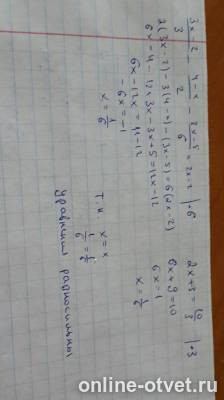 (3x-2)/3 - (4-x)/2 - (3x-5)/6 = 2x-2 | ·6
2(3x-2)-3(4-x)-(3x-5)=6(2x-2)
6x-4-12+3x-3x+5=12x-12
6x-12x=11-12
-6x=-1
x=1/6
2x+3=10/3 | ·3
6x+9=10
6x=1
x=1/6
Т.к. x=x
1/6=1/6
уравнения равносильны
online-otvet.ru